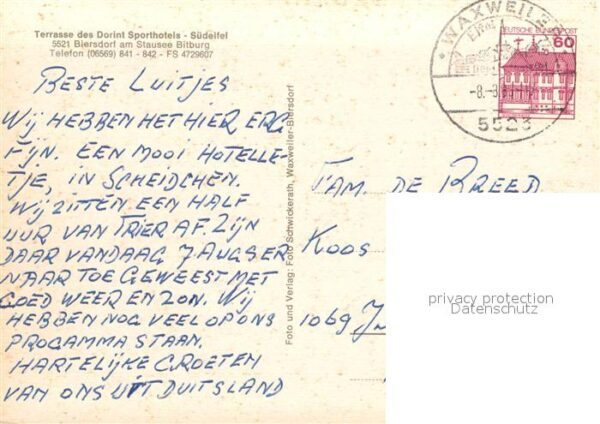 Terrasse des Dorint Sporthotels - Südeifel
5521 Biersdorf am Stausee Bitburg
Telefon (06569) 841 - 842 - FS 4729607
BESTE LUITJES
WIJ HEBBEN HET HIER ERG
FIJN. EEN MOOI HOTELLE-
TJE, IN SCHEIDCHEN.
WIJ ZITTEN EEN HALF
UUR VAN TRIER AF. ZIJN
DAAR VANDAAG 7 AUGSER
NAAR TOE GEWEEST MET
GOED WEER EN ZON. WIJ
HEBBEN NOG VEEL OP ONS
PROGAMMA STAAN.
HARTELIJKE GROETEN
VAN ONS UIT DUITSLAND
Foto und Verlag: Foto Schwickerath, Waxweiler-Biersdorf
WAXWEILER
-8.-8.
5523
DEUTSCHE BUNDESPOST
60
FAM. DE BREED
KOOS
1069
privacy protection
Datenschutz